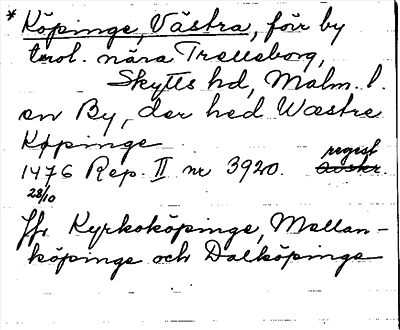 * Köpinge, Västra, förr by
trol. nära Trelleborg,
Skytts hd, Malm. l.
en By, der hed Wæstre
Køpinge
regest
1476 Rep. II nr 3920. avskr.
28/10
Jfr Kyrkoköpinge, Mellan-
köpinge och Dalköpinge